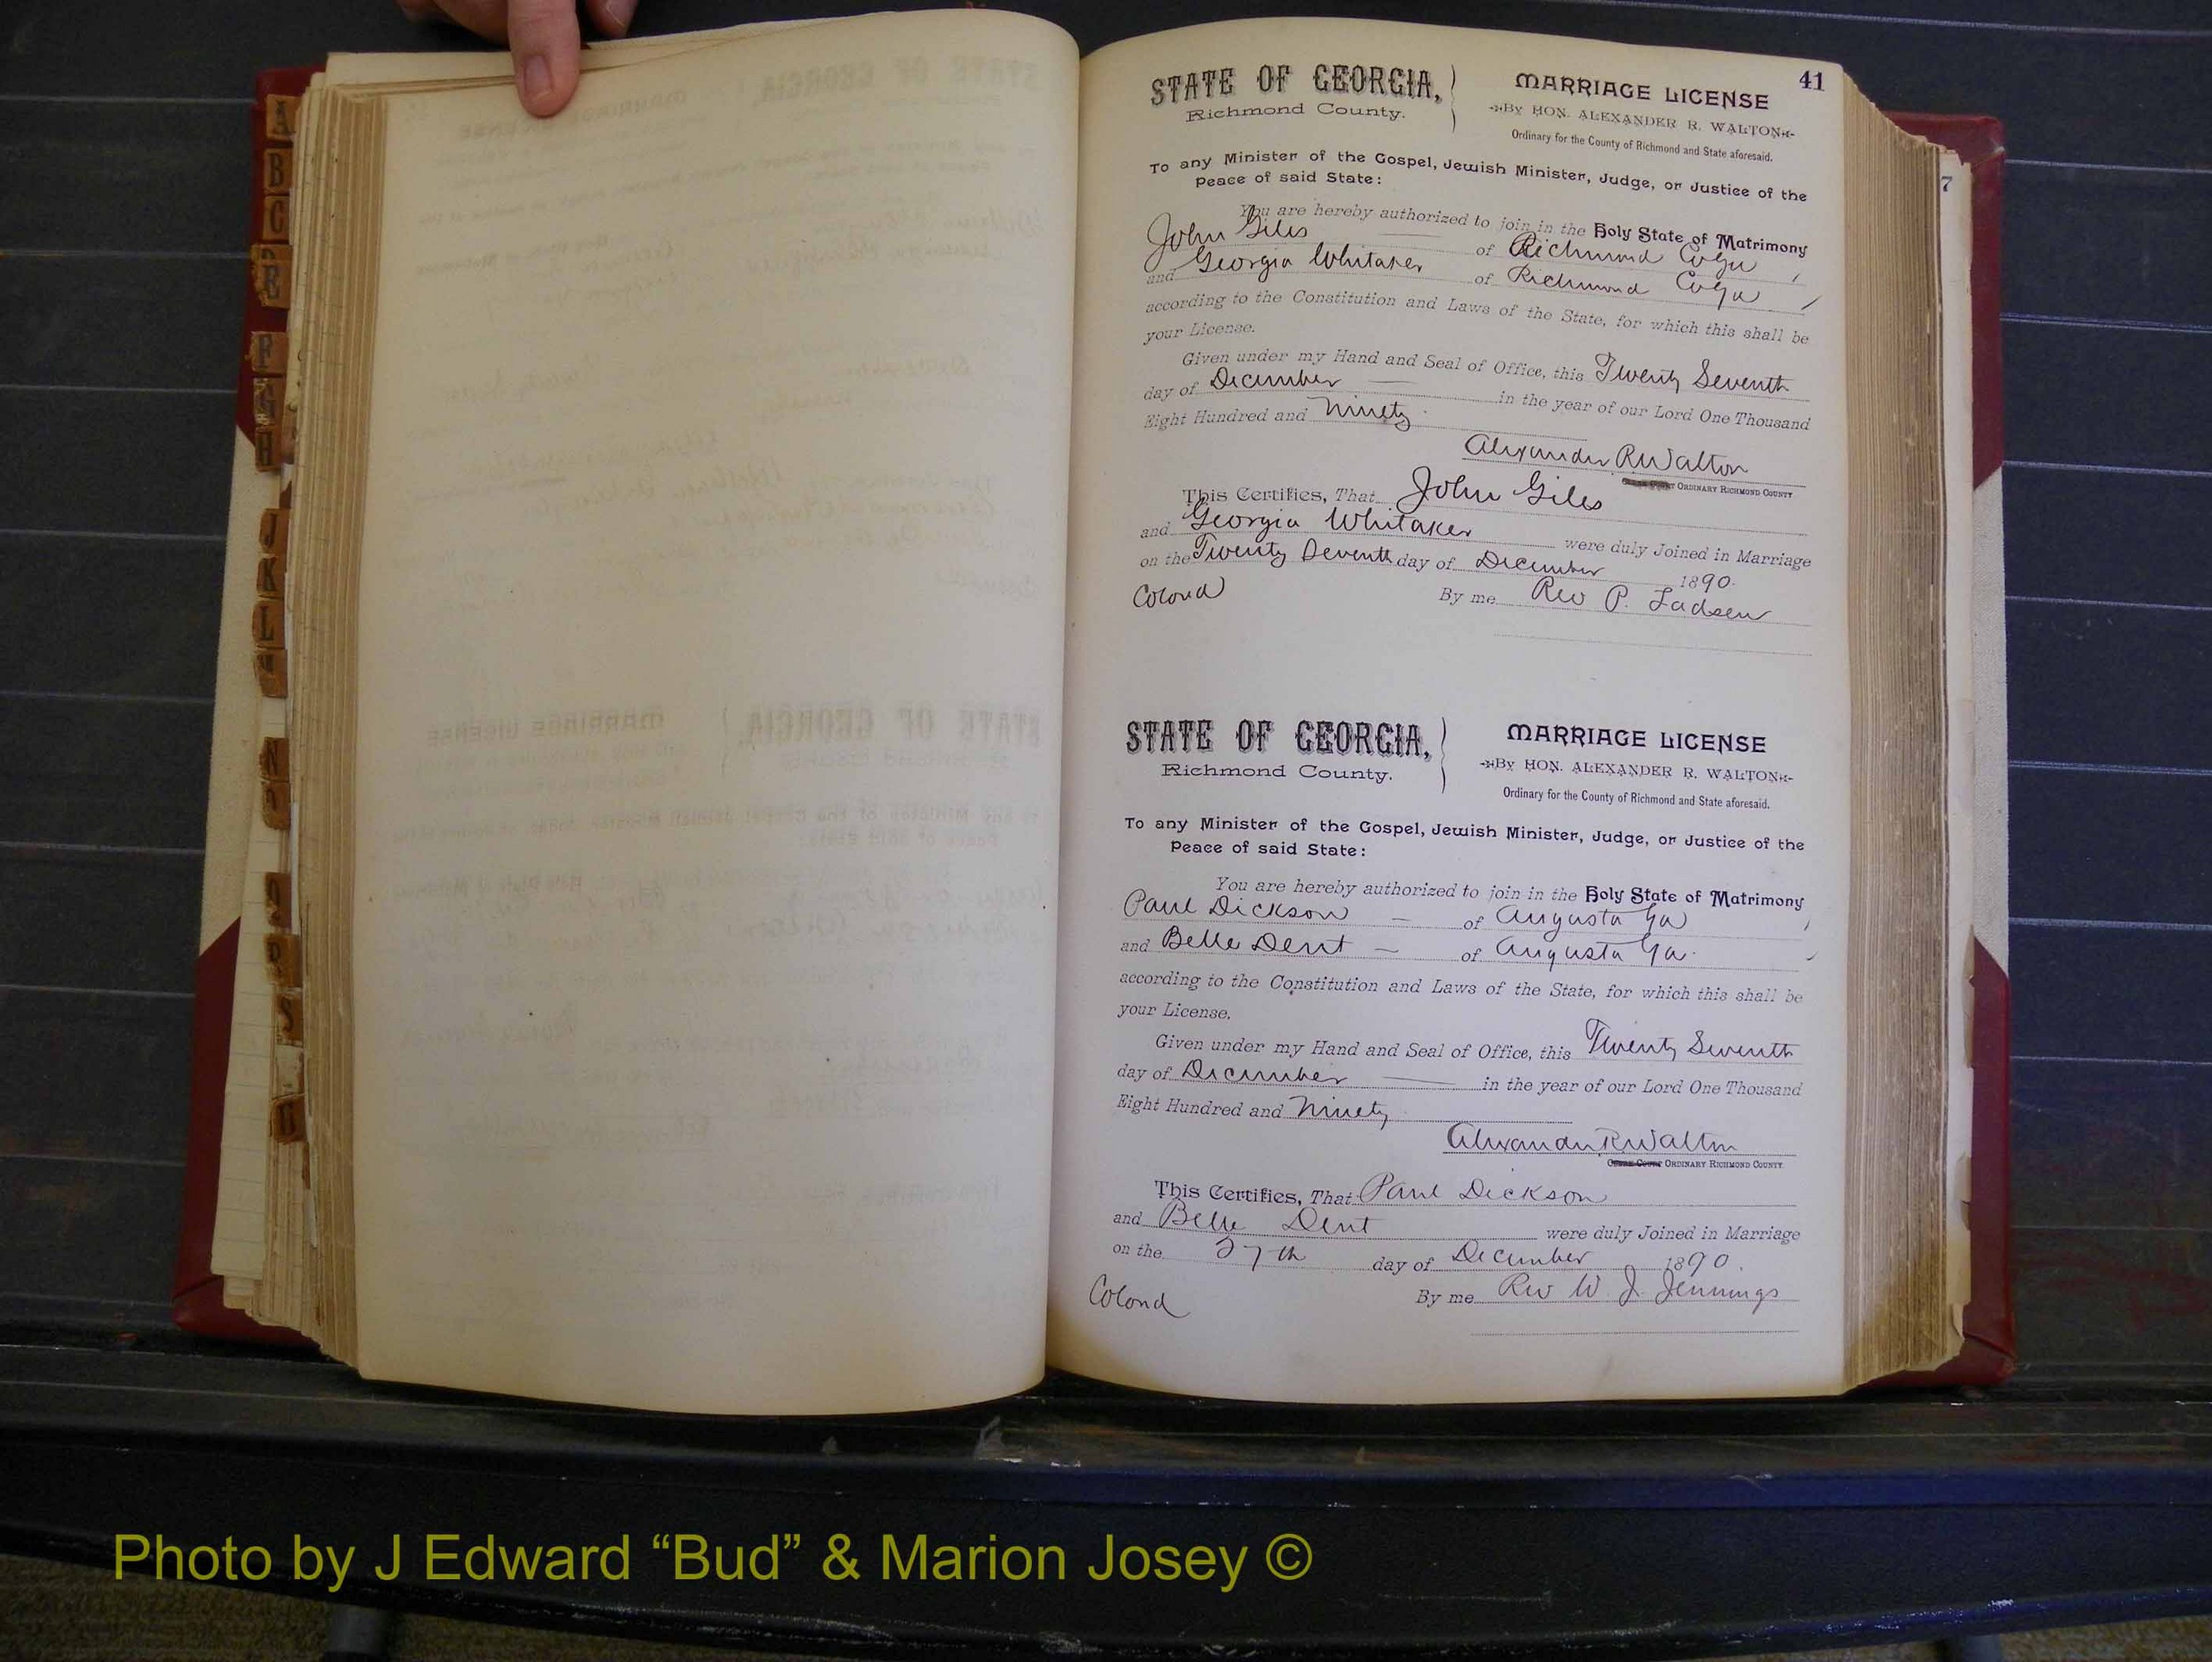 A
B
C
E
F
G
H
J
K
L
N
P
S
7
41
STATE OF GEORGIA,
Richmond County.
MARRIAGE LICENSE
By HON. ALEXANDER R. WALTON
Ordinary for the County of Richmond and State aforesaid.
To any Minister of the Gospel, Jewish Minister, Judge, or Justice of the
Peace of said State:
You are hereby authorized to join in the Holy State of Matrimony
John Giles of Richmond Co Ga
and Georgia Whitaker of Richmond Co Ga
according to the Constitution and Laws of the State, for which this shall be
your License.
Given under my Hand and Seal of Office, this Twenty Seventh
day of December in the year of our Lord One Thousand
Eight Hundred and Ninety
Alexander R Walton
ORDINARY RICHMOND COUNTY
This Certifies, That John Giles
and Georgia Whitaker were duly Joined in Marriage
on the Twenty Seventh day of December 1890.
Colord By me Rev P. Ladsen
STATE OF GEORGIA,
Richmond County.
MARRIAGE LICENSE
By HON. ALEXANDER R. WALTON
Ordinary for the County of Richmond and State aforesaid.
To any Minister of the Gospel, Jewish Minister, Judge, or Justice of the
Peace of said State:
You are hereby authorized to join in the Holy State of Matrimony
Paul Dickson — of Augusta Ga
and Belle Dent — of Augusta Ga.
according to the Constitution and Laws of the State, for which this shall be
your License.
Given under my Hand and Seal of Office, this Twenty Seventh
day of December in the year of our Lord One Thousand
Eight Hundred and Ninety
Alexander R Walton
ORDINARY RICHMOND COUNTY.
This Certifies, That Paul Dickson
and Belle Dent were duly Joined in Marriage
on the 27th day of December 1890.
Colord By me Rev W. J. Jennings
Photo by J Edward “Bud” & Marion Josey ©